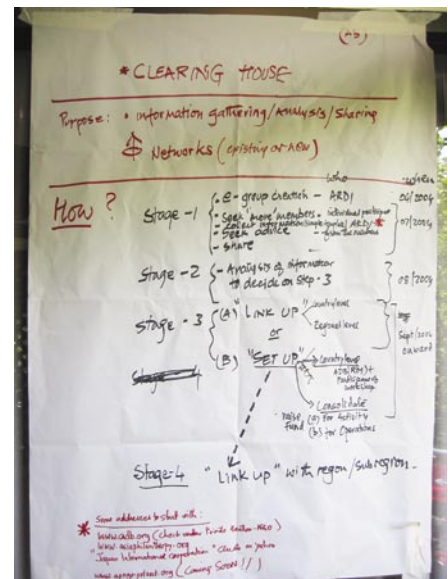 * CLEARING HOUSE
Purpose: • Information gathering/Analysis/Sharing
Networks (existing or new)
who
when
How?
Stage-1
• e-group creation – ARDI
06/2004
• Seek "more" members – individual participant
• Collect information ARDI
07/2004
• Seek advice – from the members
- Share
Stage-2
- Analysis of information
to decide on Step-3
08/2004
Stage-3
(A) "LINK UP"
Country level
or
Regional level
Sept/2004
onward
(B) "SET UP"
Country level
participants
workshop
Consolidate
raise fund
(a) for Activity
(b) for Operations
Stage-4 "Link up" with region/subregion
* Some addresses to start with:
www.adb.org (check under
"Japan International cooperation"
(Coming Soon!!)